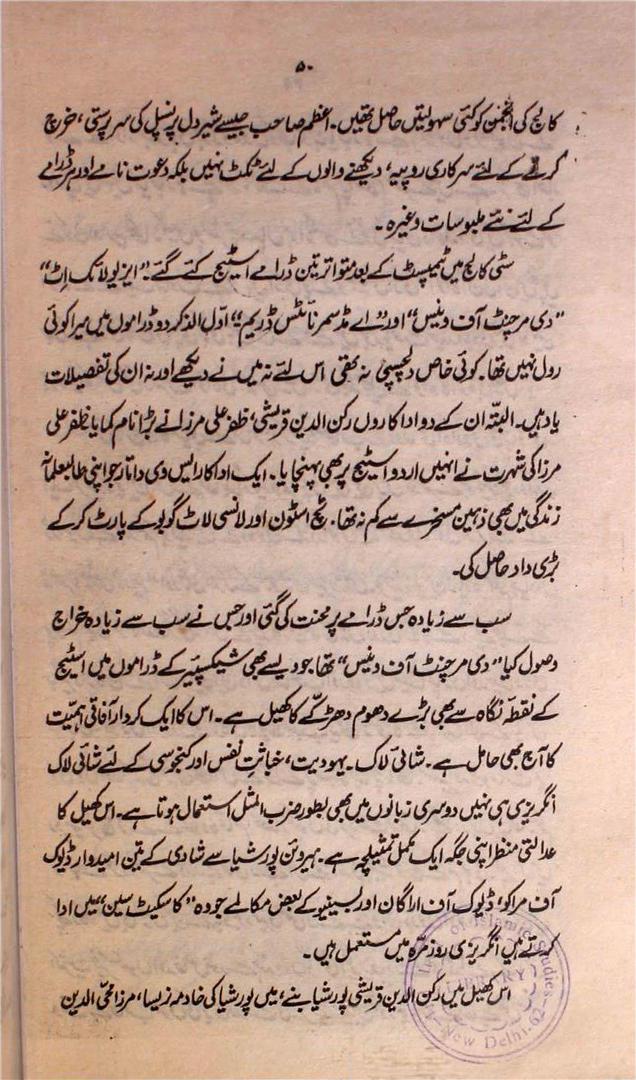 ۵۰
کالج کی انجمن کو کئی سہولتیں حاصل تھیں۔ اعظم صاحب جیسے شیر دل پرنسپل کی سرپرستی، خرچ
کرنے کے لئے سرکاری روپیہ، دیکھنے والوں کے لئے ٹکٹ نہیں بلکہ دعوت نامے اور ہر ڈرامے
کے لئے نئے ملبوسات وغیرہ۔
سٹی کالج میں ٹیمپسٹ کے بعد متواتر تین ڈرامے اسٹیج کئے گئے۔ "ایز یو لائک اٹ"
"دی مرچنٹ آف وینس" اور "اے مڈسمر نائٹس ڈریم"۔ اوّل الذکر دو ڈراموں میں میرا کوئی
رول نہیں تھا۔ کوئی خاص دلچسپی نہ تھی اس لئے نہ میں نے دیکھے اور نہ ان کی تفصیلات
یاد ہیں۔ البتہ ان کے دو اداکاروں رکن الدین قریشی، ظفر علی مرزا نے بڑا نام کمایا ظفر علی
مرزا کی شہرت نے انہیں اردو اسٹیج پر بھی پہنچایا۔ ایک اداکار ایس وی داتار جو اپنی طالبعلمانہ
زندگی میں بھی ذہین مسخرے سے کم نہ تھا۔ ٹچ اسٹون اور لانسی لاٹ گوبو کے پارٹ کرکے
بڑی داد حاصل کی۔
سب سے زیادہ جس ڈرامے پر محنت کی گئی اور جس نے سب سے زیادہ خراج
وصول کیا "دی مرچنٹ آف وینس" تھا۔ جو ویسے بھی شیکسپیئر کے ڈراموں میں اسٹیج
کے نقطۂ نگاہ سے بھی بڑے دھوم دھڑکے کا کھیل ہے۔ اس کا ایک کردار آفاقی اہمیت
کا آج بھی حامل ہے۔ شائی لاک۔ یہودیت، خباثتِ نفس اور کنجوسی کے لئے شائی لاک
انگریزی ہی نہیں دوسری زبانوں میں بھی بطور ضرب المثل استعمال ہوتا ہے۔ اس کھیل کا
عدالتی منظر اپنی جگہ ایک مکمل تمثیلچہ ہے۔ ہیروئن پورشیا سے شادی کے تین امیدوار ڈیوک
آف مراکو، ڈیوک آف اراگان اور بسینیو کے بعض مکالمے جو وہ "کاسکیٹ سین" میں ادا
کرتے ہیں انگریزی روزمرّہ میں مستعمل ہیں۔
اس کھیل میں رکن الدین قریشی پورشیا بنے، میں پورشیا کی خادمہ نریسا، مرزا محی الدین
of Islamic Studies
LIBRARY
New Delhi-62